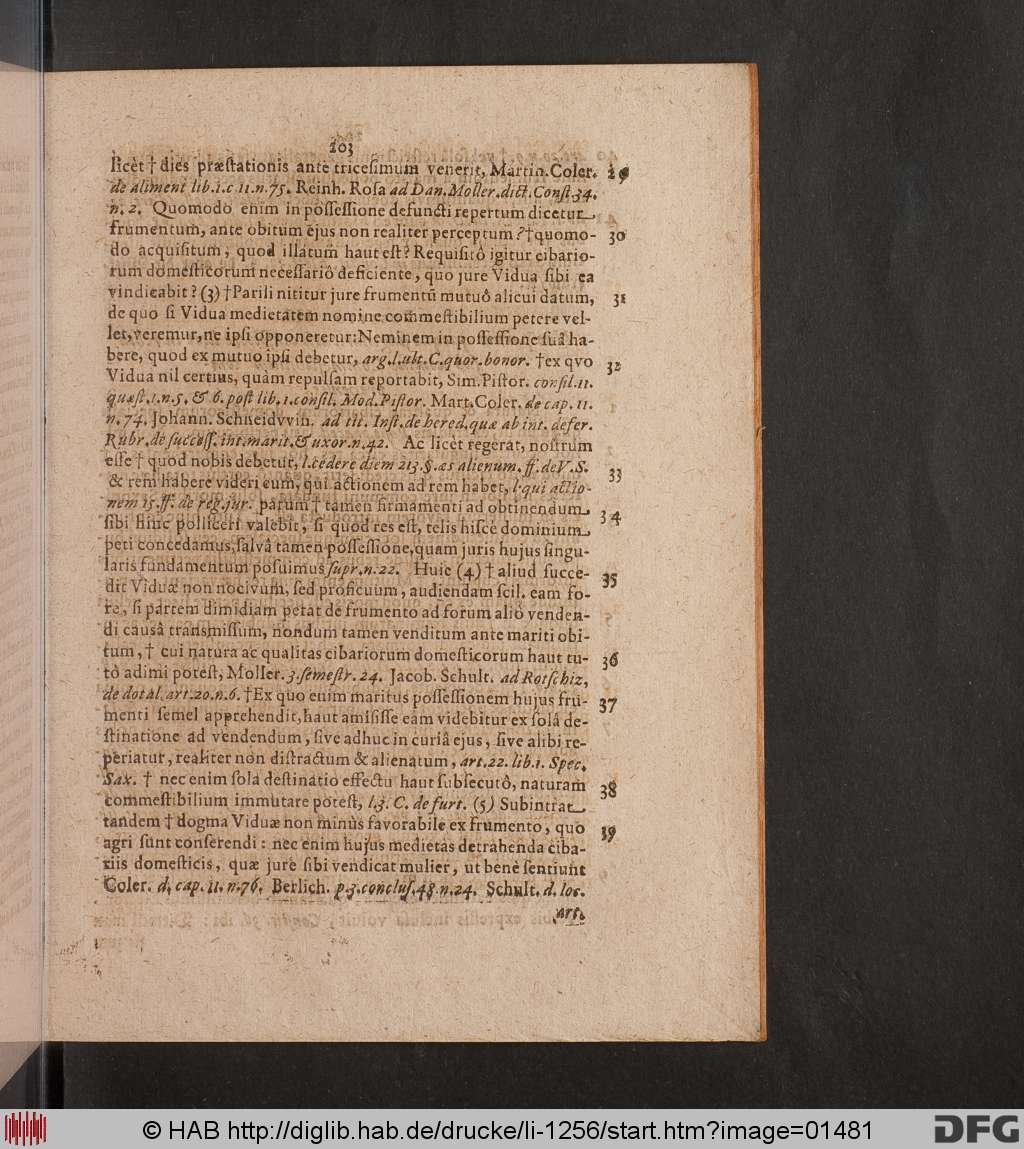 203
licèt † dies præſtationis ante triceſimum venerit, Martin. Coler. 29
de aliment lib.1.c 11.n.75. Reinh. Roſa ad Dan. Moller. dict. Conſt. 34.
n. 2. Quomodo enim in poſſeſſione defuncti repertum dicetur
frumentum, ante obitum ejus non realiter perceptum? †quomo- 30
do acquiſitum, quod illatum haut eſt? Requiſitô igitur cibario-
rum domeſticorum neceſſariô deficiente, quo jure Vidua ſibi ea
vindicabit? (3) †Parili nititur jure frumentũ mutuô alicui datum, 31
de quo ſi Vidua medietatem nomine commeſtibilium petere vel-
let, veremur, ne ipſi opponeretur: Neminem in poſſeſſione ſuâ ha-
bere, quod ex mutuo ipſi debetur, arg. l. ult. C. quor. bonor. †ex qvo 32
Vidua nil certius, quàm repulſam reportabit, Sim. Piſtor. conſil. 11.
quæſt. 1. n. 5. & 6. poſt lib. 1. conſil. Mod. Piſtor. Mart. Coler. de cap. 11.
n. 74. Johann. Schneidvvin. ad tit. Inſt. de hered. quæ ab int. defer.
Rubr. de ſucceſſ. int. marit. & uxor. n. 42. Ac licèt regerat, noſtrum
eſſe † quod nobis debetur, l. cedere diem 213. §. æs alienum. ff. de V. S. 33
& rem habere videri eum, qui actionem ad rem habet, l. qui actio-
nem 15. ff. de reg. jur. parum † tamen firmamenti ad obtinendum 34
ſibi hinc polliceri valebit, ſi quod res eſt, telis hiſce dominium
peti concedamus, ſalvâ tamen poſſeſſione, quam juris hujus ſingu-
laris fundamentum poſuimus ſupr. n. 22. Huic (4) † aliud ſucce- 35
dit Viduæ non nocivum, ſed proficuum, audiendam ſcil. eam fo-
re, ſi partem dimidiam petat de frumento ad forum aliò venden-
di causâ transmiſſum, nondum tamen venditum ante mariti obi-
tum, † cui natura ac qualitas cibariorum domeſticorum haut tu- 36
tò adimi poteſt, Moller. 3. ſemeſtr. 24. Jacob. Schult. ad Rotſchiz,
de dotal. art. 20. n. 6. †Ex quo enim maritus poſſeſſionem hujus fru- 37
menti ſemel apprehendit, haut amiſiſſe eam videbitur ex ſolâ de-
ſtinatione ad vendendum, ſive adhuc in curiâ ejus, ſive alibi re-
periatur, realiter non diſtractum & alienatum, art. 22. lib. 1. Spec.
Sax. † nec enim ſola deſtinatio effectu haut ſubſecutô, naturam 38
commeſtibilium immutare poteſt, l. 3. C. de furt. (5) Subintrat
tandem † dogma Viduæ non minùs favorabile ex frumento, quo 39
agri ſunt conſerendi: nec enim hujus medietas detrahenda ciba-
riis domeſticis, quæ jure ſibi vendicat mulier, ut benè ſentiunt
Coler. d. cap. 11. n. 76. Berlich. p. 3. concluſ. 48. n. 24. Schult. d. loc.
art.
© HAB http://diglib.hab.de/drucke/li-1256/start.htm?image=01481
DFG